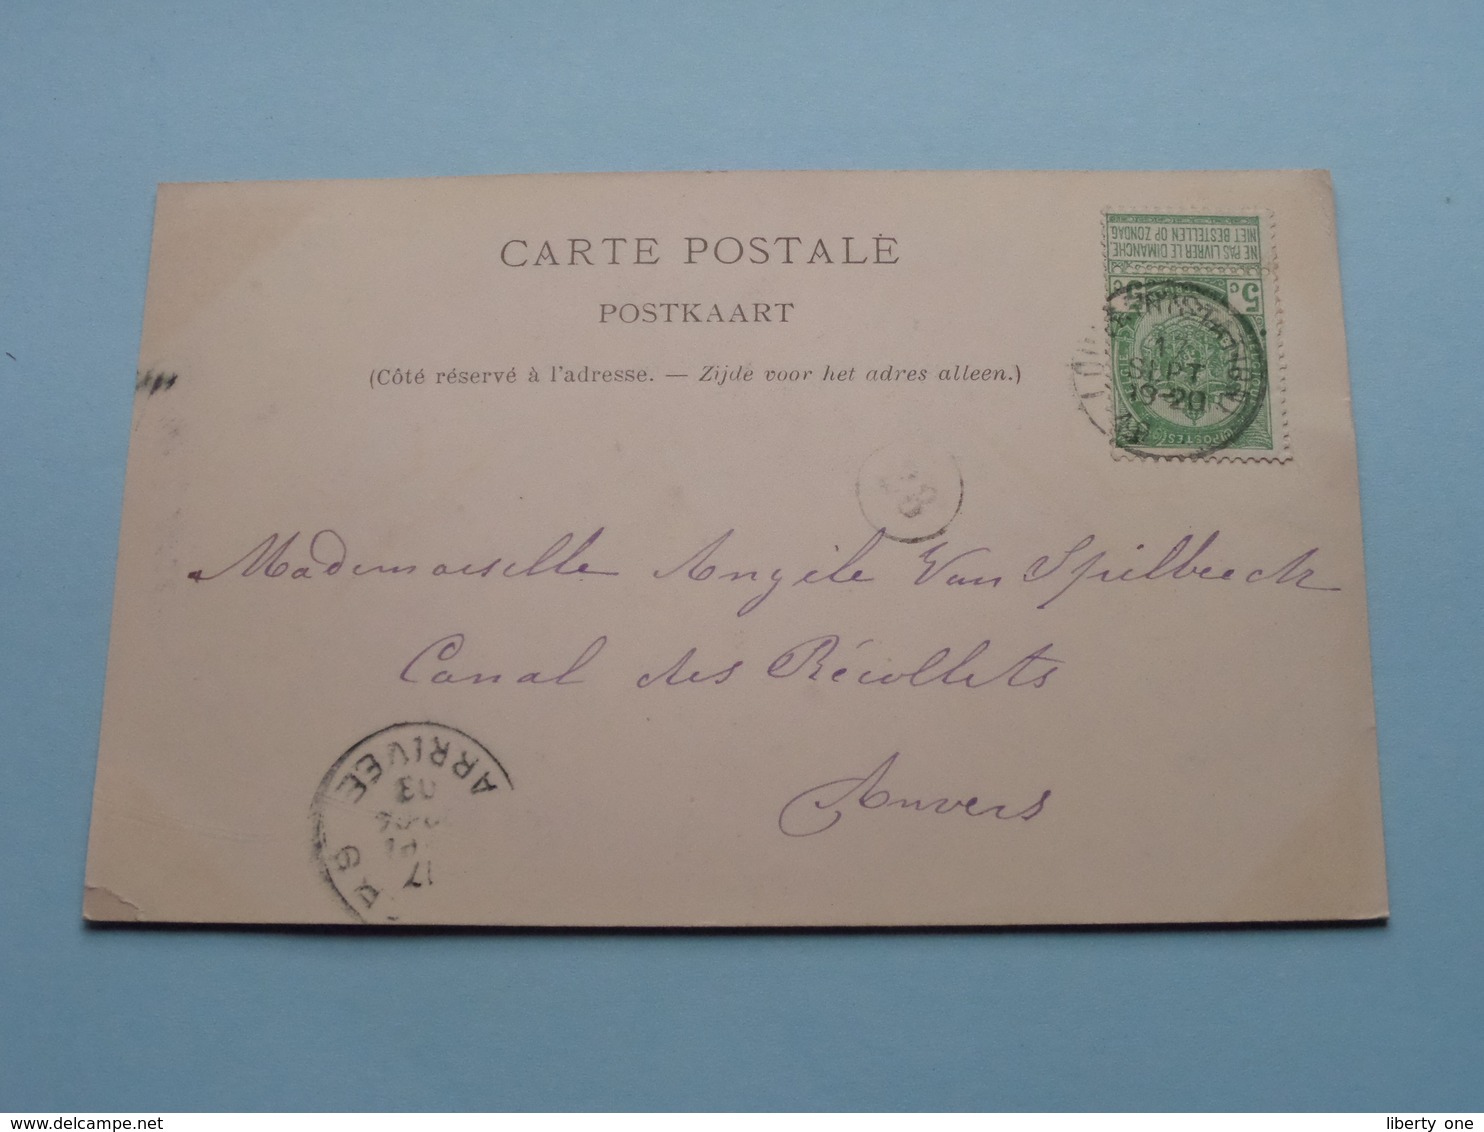 CARTE POSTALE
POSTKAART
(Côté réservé à l'adresse. — Zijde voor het adres alleen.)
NE PAS LIVRER LE DIMANCHE
NIET BESTELLEN OP ZONDAG
5c 5c
POSTES
17
SEPT
18-20
Mademoiselle Angèle Van Spilbeeck
Canal des Récollets
Anvers
ARRIVEE
03
17
6
delcampe.net
liberty one